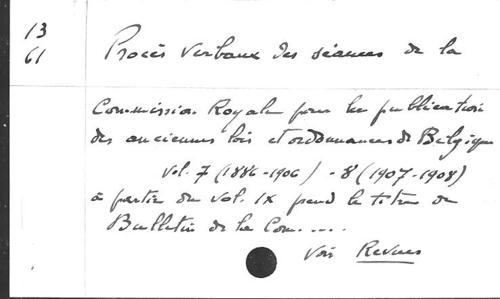 13
61
Procès verbaux des séances de la
Commission Royale pour la publication
des anciennes lois et ordonnances de Belgique
Vol. 7 (1886-1906) - 8 (1907-1908)
à partir du vol. IX prend le titre de
Bulletin de la Com. ...
Voir Revues